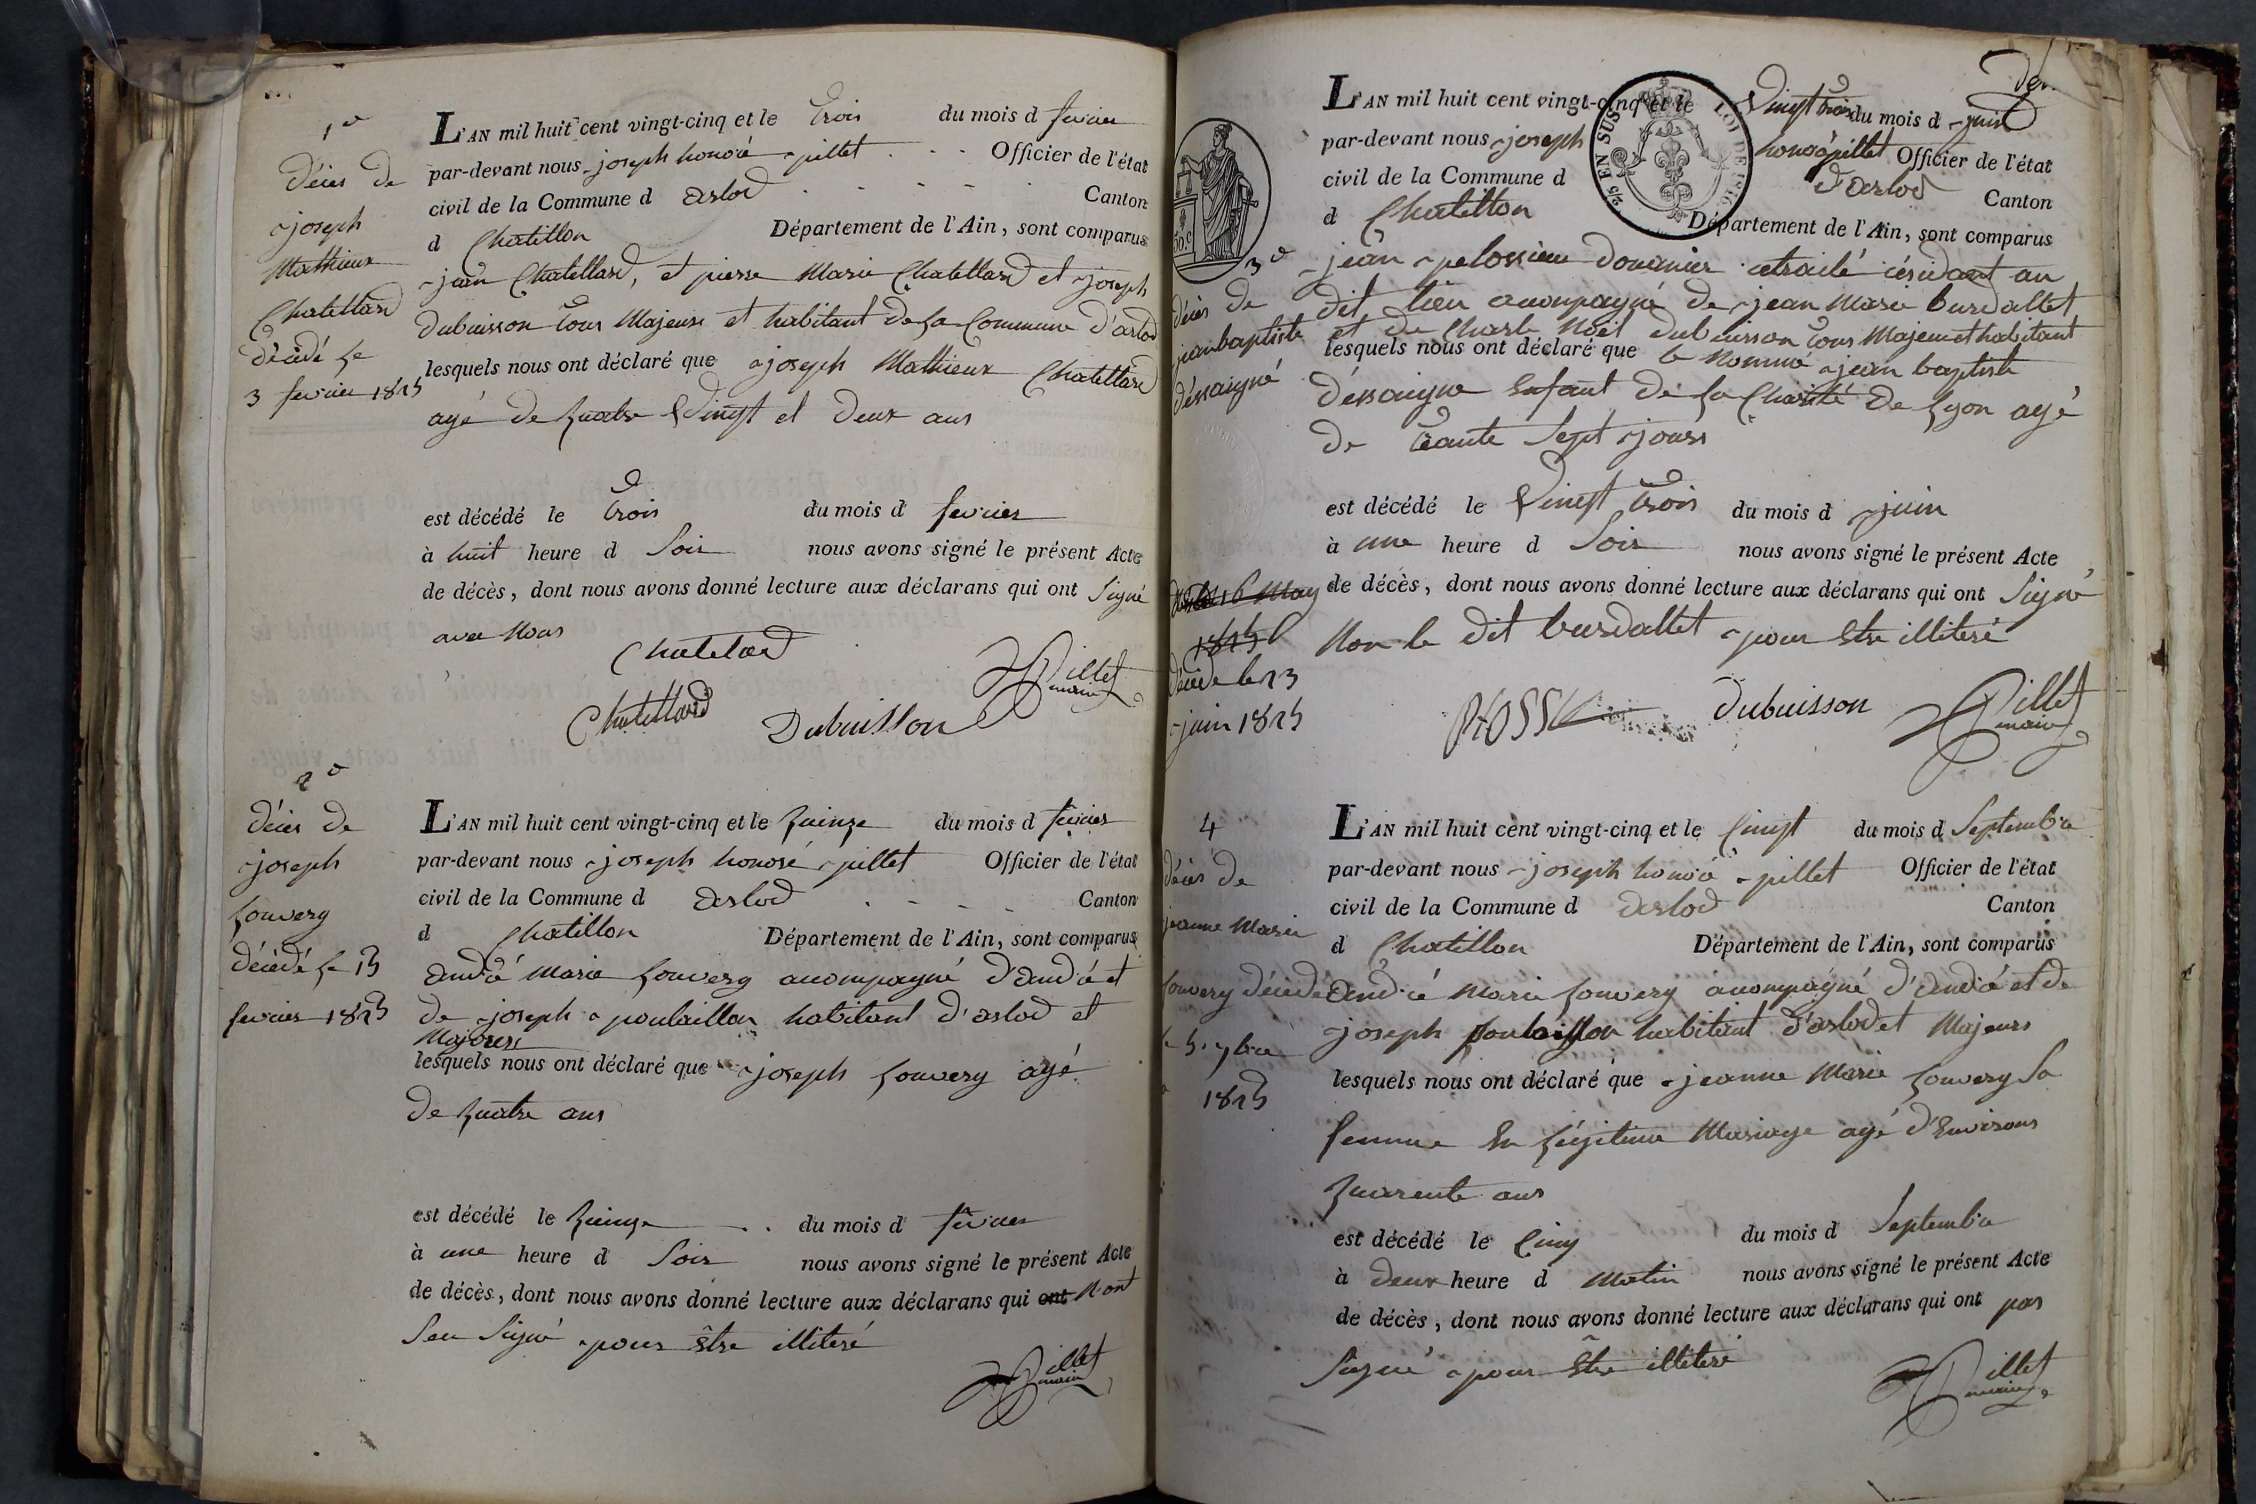 1°
décès de
joseph
Mathieux
Chatellard
décédé le
3 fevrier 1825
L'AN mil huit cent vingt-cinq et le Trois du mois d fevrier
par-devant nous joseph honoré pillet Officier de l'état
civil de la Commune d arlod Canton
d Chatillon Département de l'Ain, sont comparus
jean Chatellard, et pierre Marie Chatellard et joseph
Dubuisson tous Majeurs et habitant de la Commune d'arlod
lesquels nous ont déclaré que joseph Mathieux Chatellard
agé de quatre Vingt et deux ans
est décédé le Trois du mois d fevrier
à huit heure d Soir nous avons signé le présent Acte
de décès, dont nous avons donné lecture aux déclarans qui ont Signé
avec Nous
Chatelard
Pillet
maire
Chatellard Dubuisson
2°
décès de
joseph
fouvery
décédé le 15
fevrier 1825
L'AN mil huit cent vingt-cinq et le quinze du mois d fevrier
par-devant nous joseph honoré pillet Officier de l'état
civil de la Commune d arlod Canton
d Chatillon Département de l'Ain, sont comparus
andré Marie fouvery acompagné d'andré et
de joseph poulaillon habitant d'arlod et
Majeurs
lesquels nous ont déclaré que joseph fouvery agé
de quatre ans
est décédé le quinze du mois d fevrier
à une heure d Soir nous avons signé le présent Acte
de décès, dont nous avons donné lecture aux déclarans qui ont N'ont
Seu Signé pour être illiteré
Pillet
maire
3°
décès de
jean baptiste
déssaigne
16 May
1825
décédé le 23
juin 1825
L'AN mil huit cent vingt-cinq et le Vingt trois du mois d juin
par-devant nous joseph honoré pillet Officier de l'état
civil de la Commune d d'arlod Canton
d Chatillon Département de l'Ain, sont comparus
jean pelossieux douanier retraité résidant au
dit lieu acompagné de jean Marie burdallet
et de Charle Noël dubuisson tous Majeur et habitant
lesquels nous ont déclaré que le Nommé jean baptiste
déssaigne Enfant de la Charité de Lyon agé
de trante Sept jours
est décédé le Vingt trois du mois d juin
à une heure d Soir nous avons signé le présent Acte
de décès, dont nous avons donné lecture aux déclarans qui ont Signé
Non le dit burdallet pour Etre illiteré
Dubuisson Pillet
maire
4
décès de
jeanne Marie
fouvery décédé
le 5 7bre
1825
L'AN mil huit cent vingt-cinq et le Cinqt du mois d Septembre
par-devant nous joseph honoré pillet Officier de l'état
civil de la Commune d arlod Canton
d Chatillon Département de l'Ain, sont comparus
andré Marie fouvery acompagné d'andré et de
joseph poulaillon habitant d'arlod et Majeurs
lesquels nous ont déclaré que jeanne Marie fouvery Sa
femme En Légitime Mariage agé d'Environs
quarente ans
est décédé le Cinq du mois d Septembre
à deux heure d Matin nous avons signé le présent Acte
de décès, dont nous avons donné lecture aux déclarans qui ont pas
Signé pour Etre illiteré
Pillet
maire